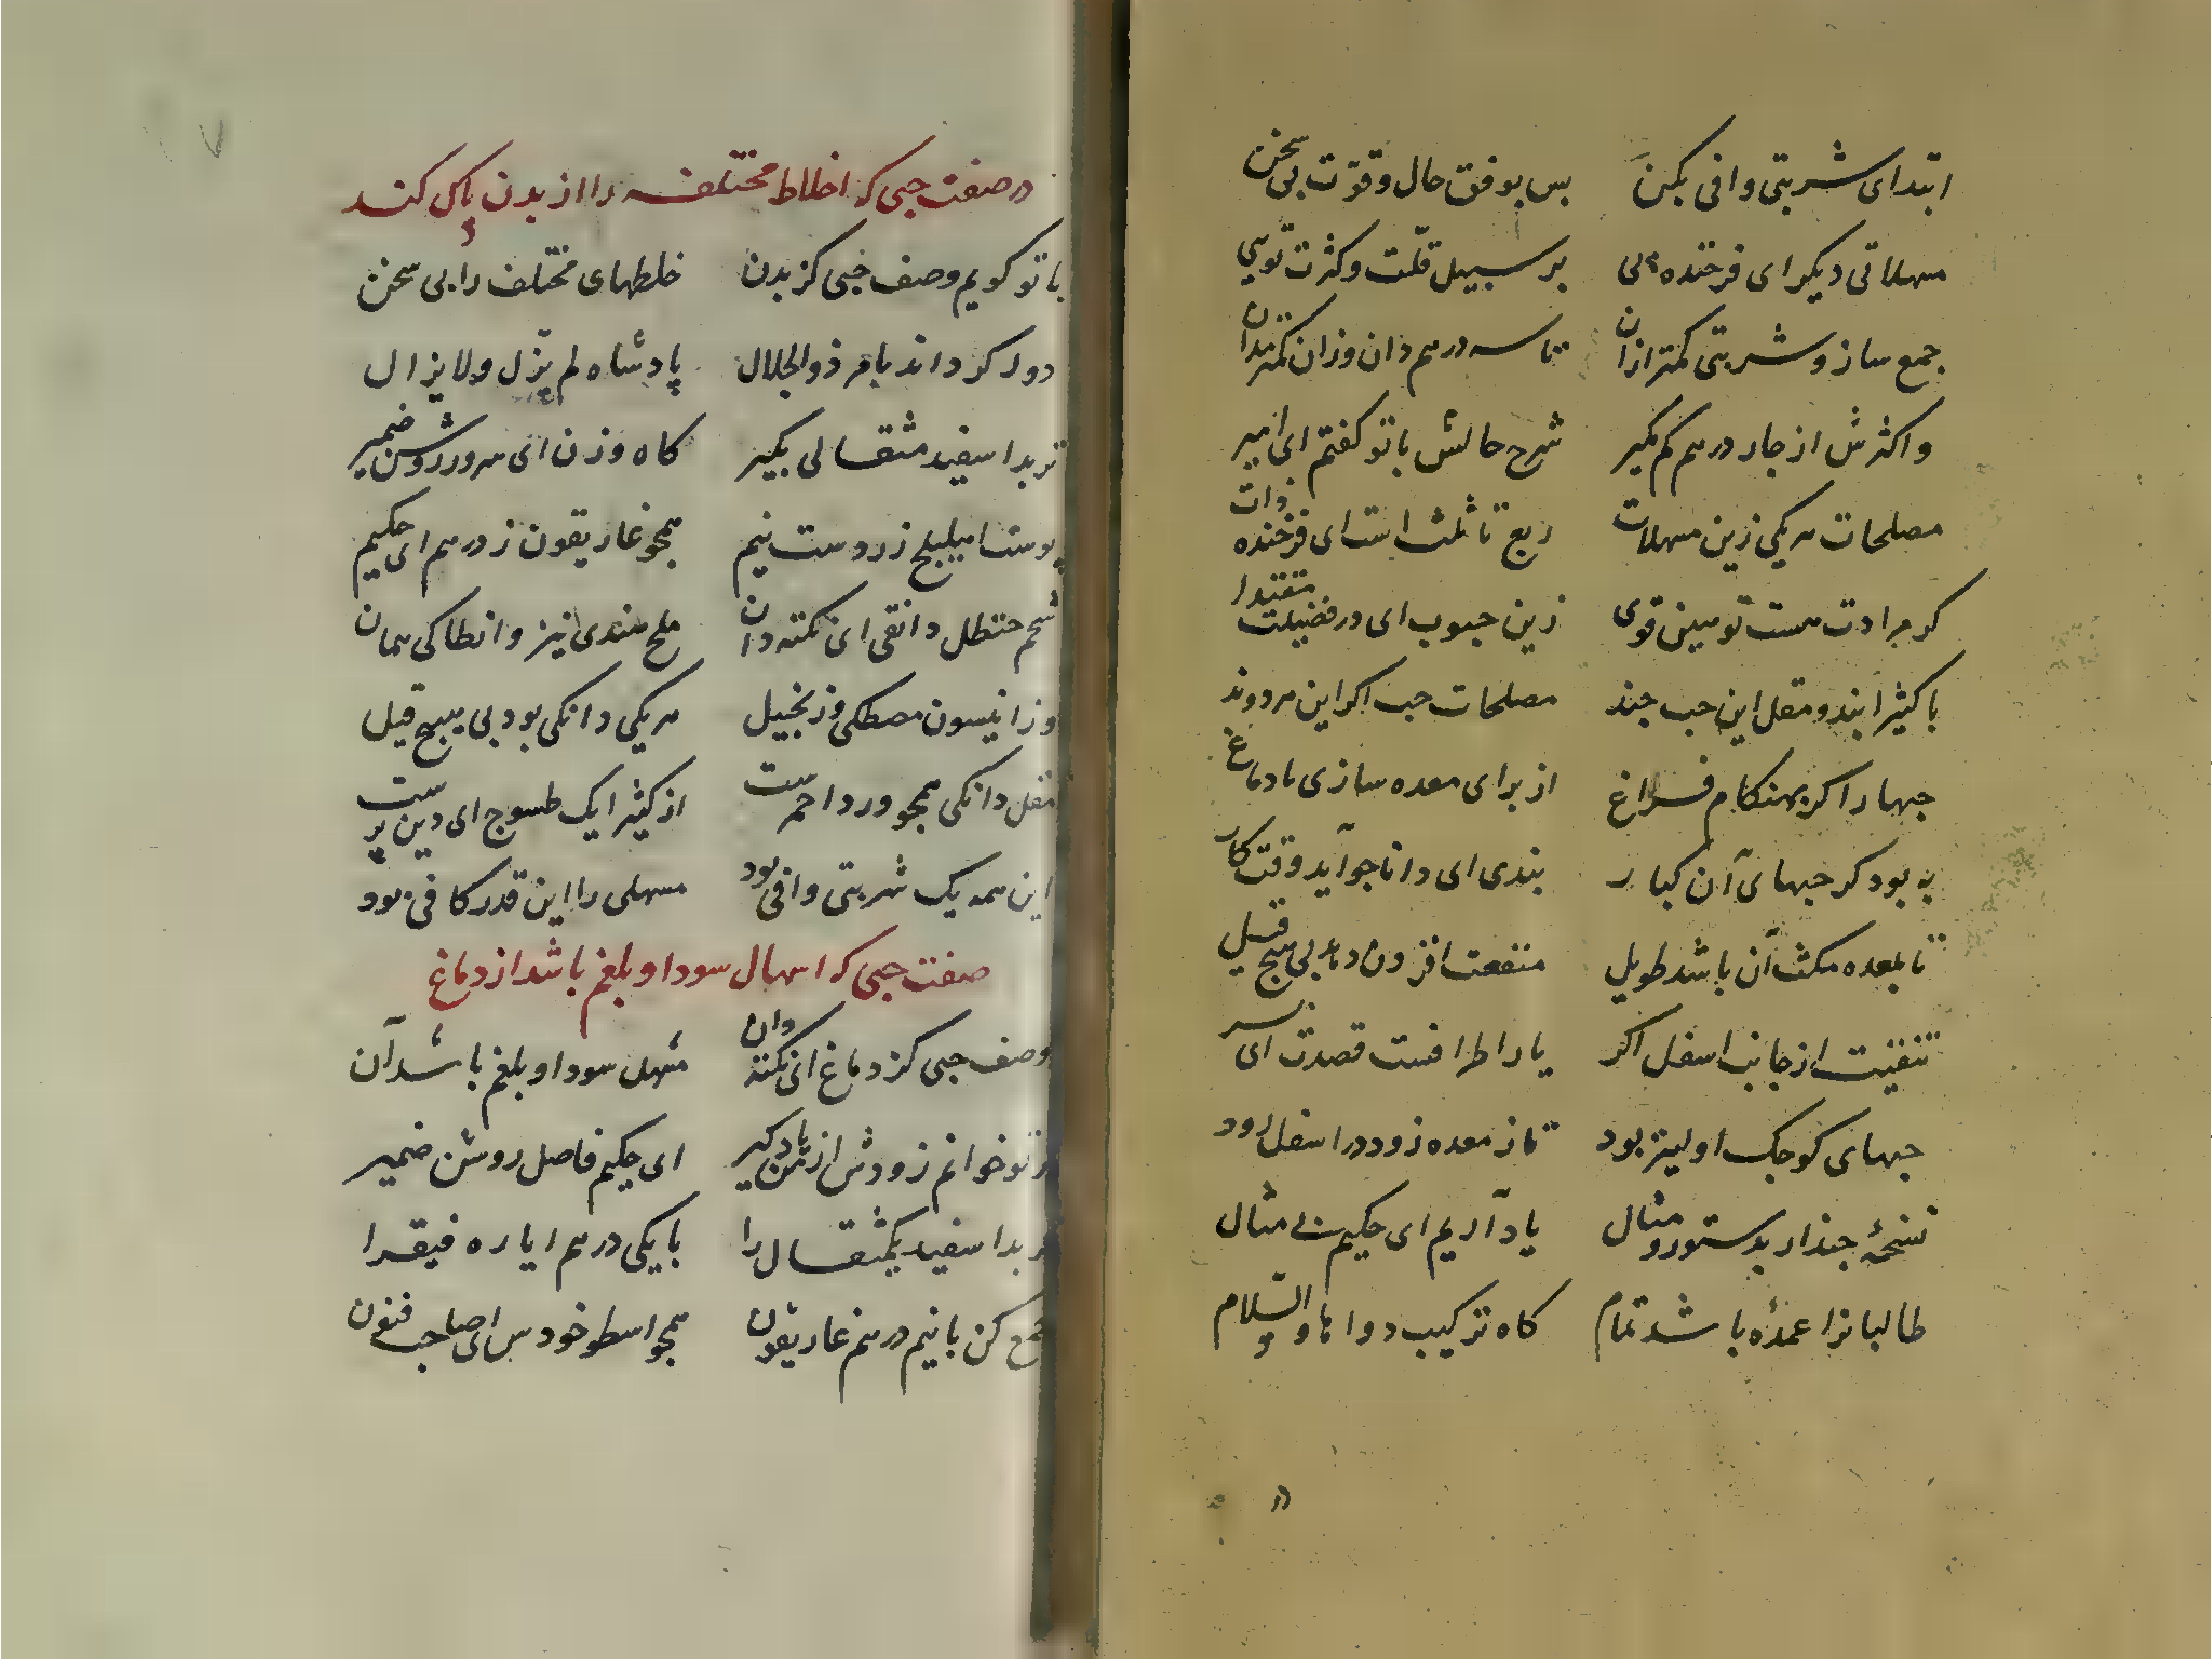 ابتدای شربتی وافی بکن بس بوفق حال وقوّت بی سخن
مسهلاتی دیکر ای فرخنده پی بر سبیل قلّت وکثرت
جمع ساز و شربتی کمتر ازان تا سه درهم دان وزان کمتر مدان
واکثرش از جار درهم کم مکیر شرح حالش باتو کفتم ای امیر
مصلحات هریکی زین مسهلات ربع تا ثلث است ای فرخنده ذات
کر مرادت هست قوی زین حبوب ای در فضیلت مقتدا
با کثیرا بند و مقل این حب جند مصلحات حب اکر این هردوند
حبها را کر بهنکام فراغ از برای معده سازی یا دماغ
به بود کر حبهای آن کبار بندی ای دانا جو آید وقت کار
تا بمعده مکث آن باشد طویل منفعت افزون دهد بی هیج قیل
تنقیت از جانب اسفل اکر یا ز اطرافست قصدت ای پسر
حبهای کوجک اولیتر بود تا ز معده زود در اسفل رود
نسخهٔ جند از بدستور و مثال یاد آریم ای حکیم بی مثال
طالبانرا عمده باشد تمام کاه ترکیب دواها والسّلام
در صفت حبی که اخلاط مختلفه را از بدن پاک کند
باتو کویم وصف حبی کز بدن خلطهای مختلف را بی سخن
دور کرداند بامر ذوالجلال پادشاه لم یزل ولایزال
تربد اسفید مثقالی بکیر کاه وزن ای سرور روشن ضمیر
پوست اهلیلج زردست نیم همجو غاریقون ز درهم ای حکیم
شحم حنظل دانقی ای نکته دان ملح هندی نیز و انطاکی همان
وز انیسون مصطکی وزنجبیل هریکی دانکی بود بی هیج قیل
مقل دانکی همجو ورد احمرست از کثیرا یک طسوج ای دین پرست
این همه یک شربتی وافی بود مسهلی را این قدر کافی بود
صفت حبی که اسهال سودا و بلغم باشد از دماغ
وصف حبی کز دماغ ای نکته دان مسهل سودا و بلغم باشد آن
بر تو خوانم زودش از من یاد کیر ای حکیم فاضل روشن ضمیر
تربد اسفید یکمثقال را با یکی درهم ایاره فیقرا
جمع کن با نیم درهم غاریقون همجو اسطوخودس ای صاحب فنون